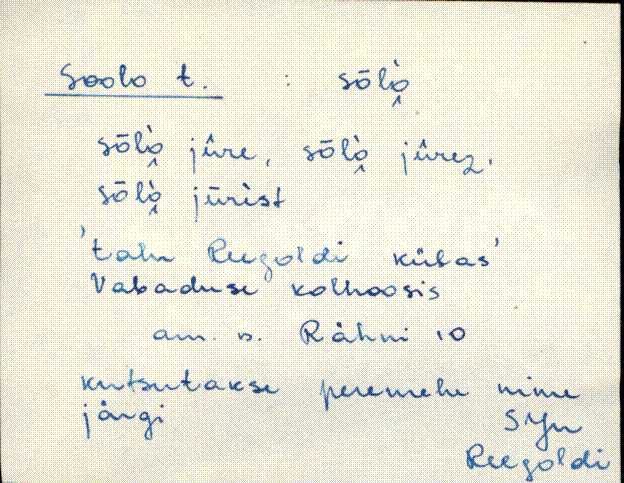 Soolo t. : sōlò̭
sōlò̭ jûre, sōlò̭ jûrez.
sōlò̭ jūrist
'talu Reegoldi külas'
Vabaduse kolhoosis
am. n. Rähni 10
kutsutakse peremehe nime
järgi SJn
Reegoldi